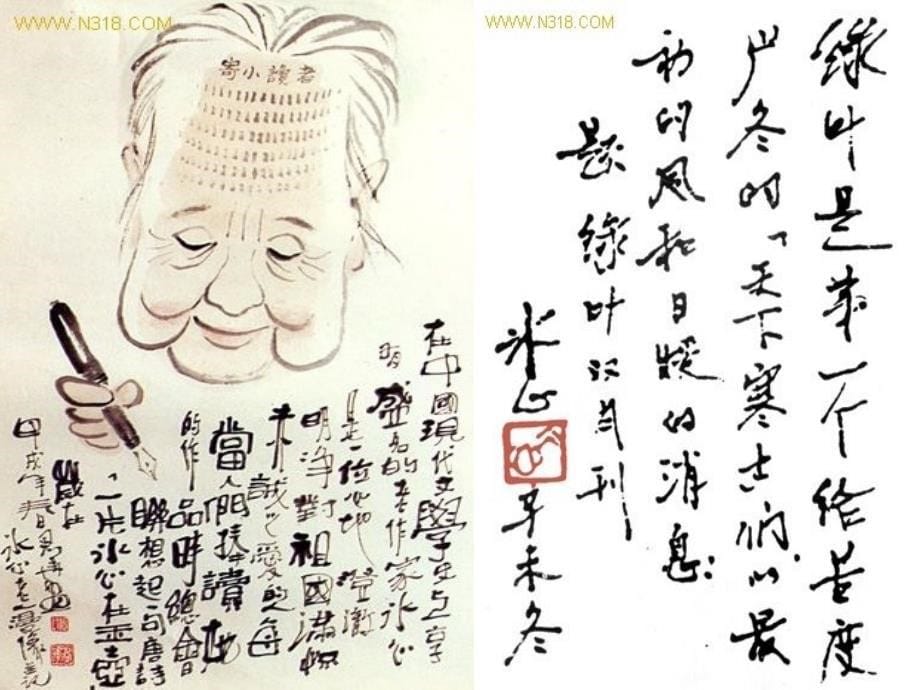 WWW.N318.COM
寄小讀者
在中國現代文學史上享
有盛名的老作家冰心
是一位心地 澄澈
明净對祖國滿懷
赤誠之愛的人每
當人們捧讀她
的作品時總會
聯想起一句唐詩
「一片冰心在玉壺
歲在
甲戌年春日
冰心老漫像
WWW.N318.COM
绿叶是第一个给苦度
严冬的「天下寒士们」以最
初的风和日暖的消息：
题绿叶双月刊
冰心
辛未冬